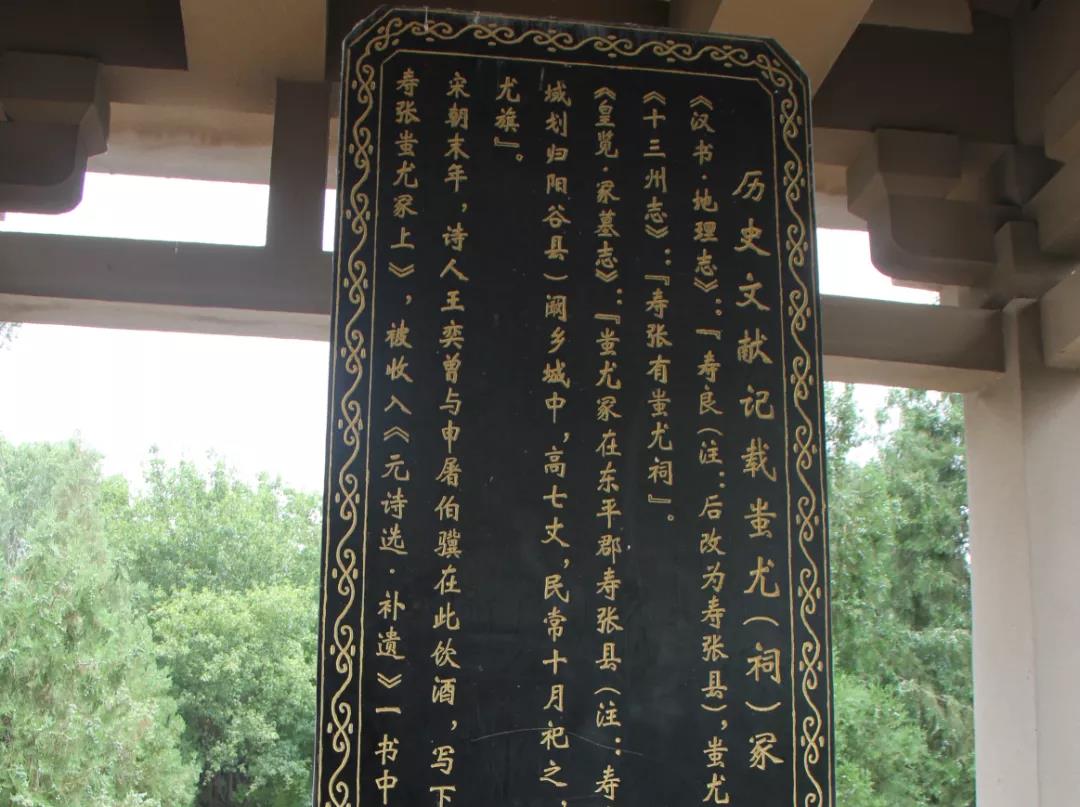 历史文献记载蚩尤(祠)冢
《汉书·地理志》:『寿良(注:后改为寿张县),蚩尤
《十三州志》:『寿张有蚩尤祠』。
《皇览·冢墓志》:『蚩尤冢在东平郡寿张县(注:寿
域划归阳谷县)阚乡城中,高七丈,民常十月祀之,
尤旗』。
宋朝末年,诗人王奕曾与申屠伯骥在此饮酒,写下
寿张蚩尤冢上》,被收入《元诗选·补遗》一书中